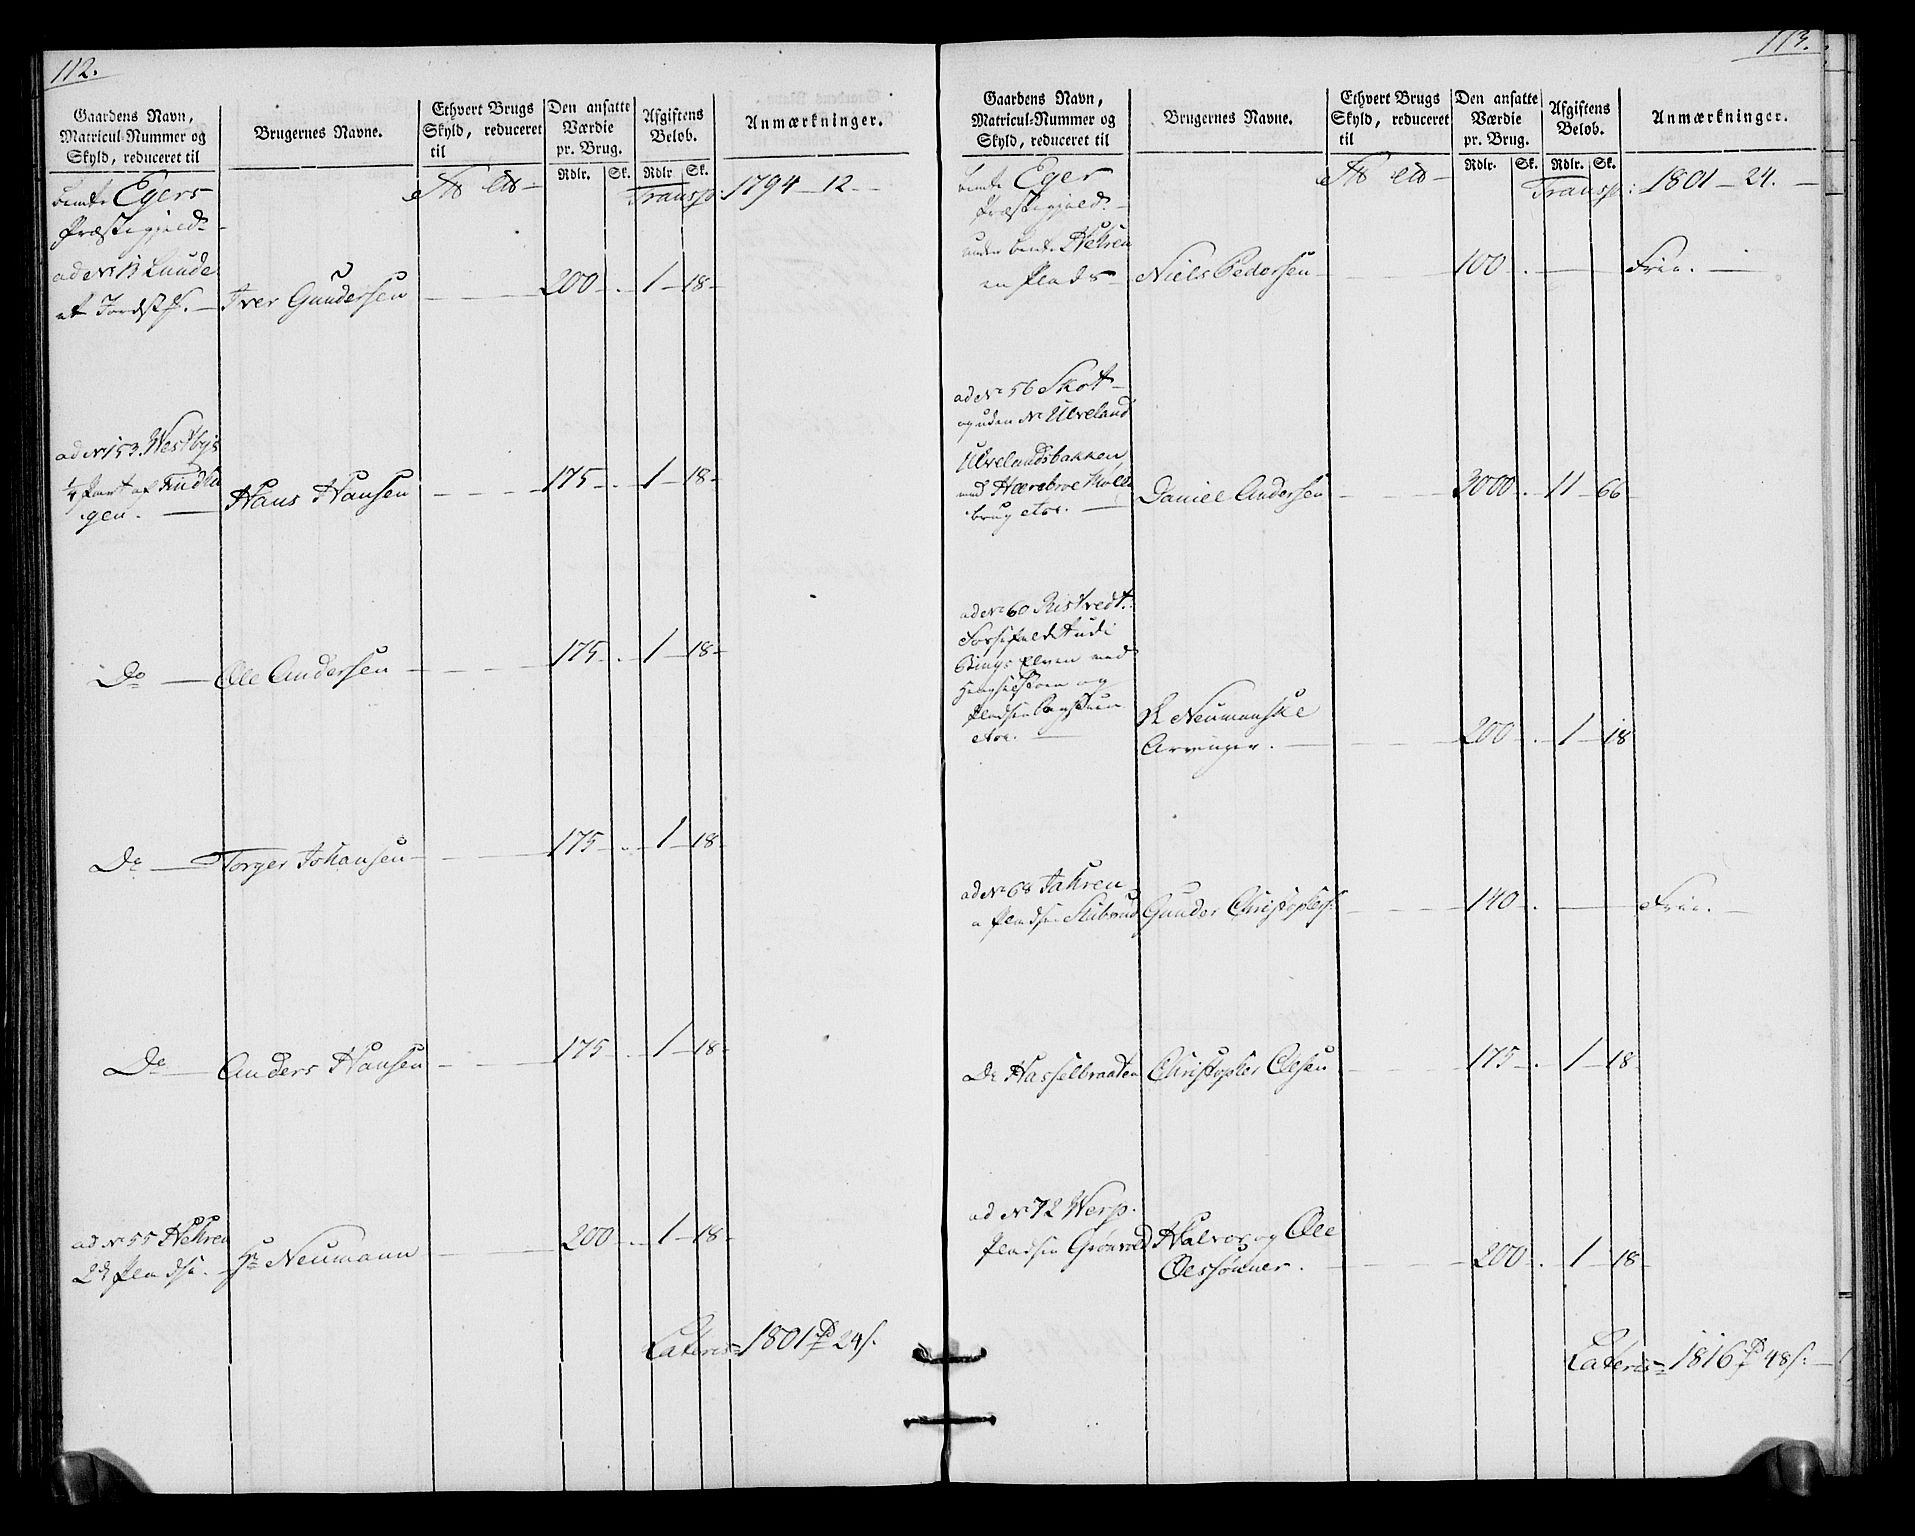 112.
Gaardens Navn,
Matricul-Nummer og
Skyld, reduceret til
Brugernes Navne.
Ethvert Brugs
Skyld, reduceret
til
Den ansatte
Værdie
pr. Brug.
Rdlr. Sk.
Afgiftens
Beløb.
Rdlr. Sk.
Anmærkninger.
Egers
Præstegjeld
Transp. 1794 - 12 -
ad No 13 Lunde
et Jordst. - Iver Gundersen - 200 - . - 1 - 18 -
ad No 153 Westbye
1/4 Part af
gen. - Hans Hansen - 175 - . - 1 - 18 -
Do - Ole Andersen - 175 - . - 1 - 18 -
Do - Torger Johansen - 175 - . - 1 - 18 -
Do - Anders Hansen - 175 - . - 1 - 18 -
ad No 55 Hehren
2de Pladse. - Hr Neumann - 200 - . - 1 - 18 -
Lateris = 1801 24 s.
113.
Gaardens Navn,
Matricul-Nummer og
Skyld, reduceret til
Brugernes Navne.
Ethvert Brugs
Skyld, reduceret
til
Den ansatte
Værdie
pr. Brug.
Rdlr. Sk.
Afgiftens
Beløb.
Rdlr. Sk.
Anmærkninger.
Eger
Præstegjeld. -
Transp: 1801 - 24. -
under Hehren
en Plads - Niels Pedersen - 100 - . - Frie. -
ad No 56 Skot -
og uden No Ulveland
Ulvelandsbakken
med Hærebroe Mølle
brug etc. - Daniel Andersen - 3000 - . - 11 - 66 -
ad No 60 Ristvedt.
Bings Elven med
og
Pladsen
etc. - Neumanske
Arvinger. - 200 - . - 1 - 18
ad No 68 Jahren
Pladsen Stibrud Gunder Christophers: - 140 - . - Frie. -
Do Hasselbraaten Christopher Olsen - 175 - . - 1 - 18 -
ad No 72 Werp.
Pladsen Grønvold Halvor og Ole
Olssønner. - 200 - . - 1 - 18 -
Lateris = 1816 48 s. -